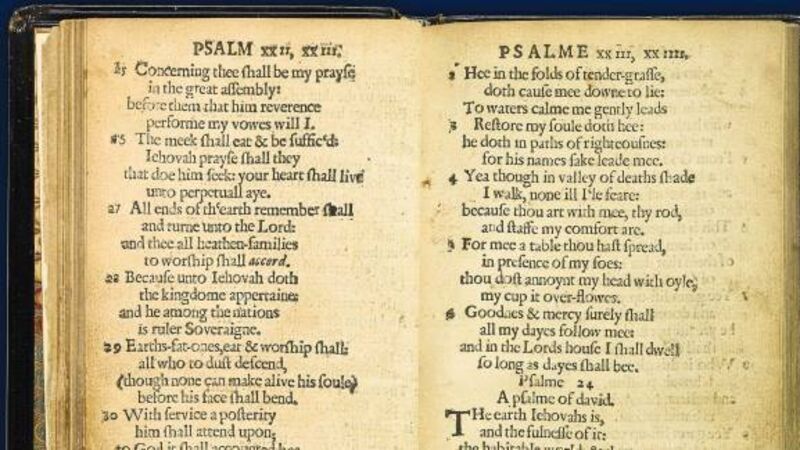 PSALM xxii, xxiii.
25 Concerning thee shall be my prayse
in the great assembly:
before them that him reverence
performe my vowes will I.
25 The meek shall eat & be suffic'd:
Iehovah prayse shall they
that doe him seek: your heart shall live
unto perpetuall aye.
27 All ends of th'earth remember shall
and turne unto the Lord:
and thee all heathen-families
to worship shall accord.
28 Because unto Iehovah doth
the kingdome appertaine:
and he among the nations
is ruler Soveraigne.
29 Earths-fat-ones, eat & worship shall:
all who to dust descend,
(though none can make alive his soule)
before his face shall bend.
30 With service a posterity
him shall attend upon;
to God it shall accounted bee
PSALME xxiii, xxiiii.
2 Hee in the folds of tender-grasse,
doth cause mee downe to lie:
To waters calme me gently leads
3 Restore my soule doth hee:
he doth in paths of righteousnes:
for his names sake leade mee.
4 Yea though in valley of deaths shade
I walk, none ill I'le feare:
because thou art with mee, thy rod,
and staffe my comfort are.
5 For mee a table thou hast spread,
in presence of my foes:
thou dost annoynt my head with oyle,
my cup it over-flowes.
6 Goodnes & mercy surely shall
all my dayes follow mee:
and in the Lords house I shall dwell
so long as dayes shall bee.
Psalme 24
A psalme of david.
THe earth Iehovahs is,
and the fulnesse of it:
the habitable world,